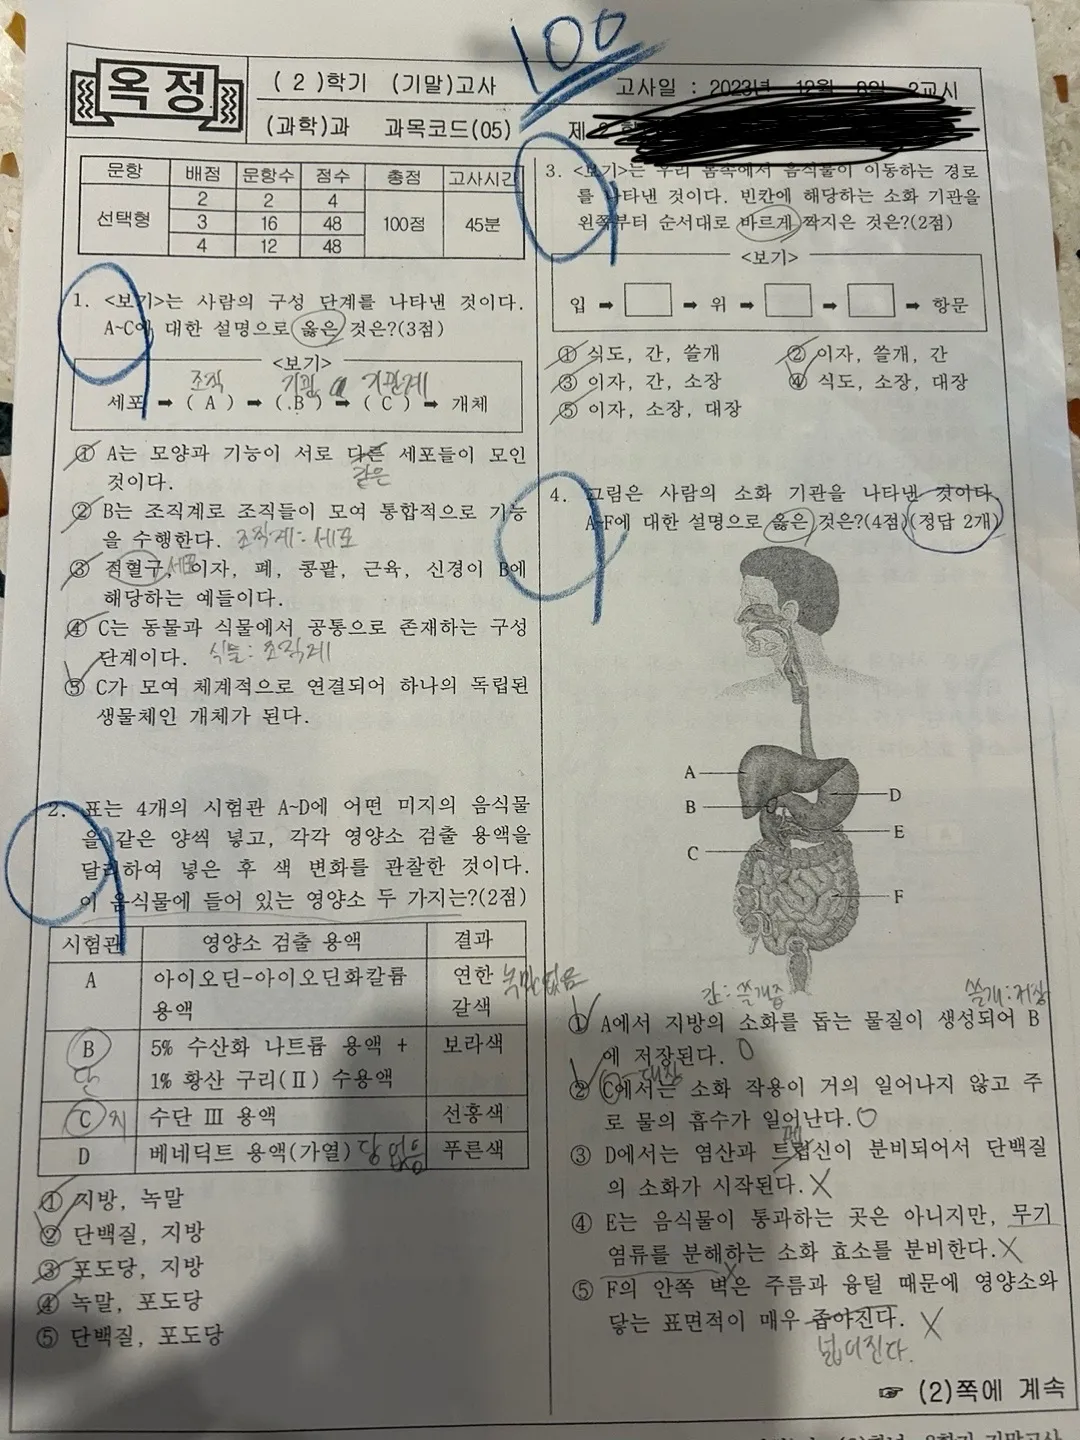 100
옥정
( 2 )학기 (기말)고사
고사일 : 2023년 12월 8일 2교시
(과학)과 과목코드(05)
제 2 학
문항 배점 문항수 점수 총점 고사시간
선택형 2 2 4 100점 45분
3 16 48
4 12 48
1. <보기>는 사람의 구성 단계를 나타낸 것이다.
A~C에 대한 설명으로 옳은 것은?(3점)
<보기>
조직 기관 기관계
세포 ➡ ( A ) ➡ ( B ) ➡ ( C ) ➡ 개체
① A는 모양과 기능이 서로 다른 세포들이 모인
같은
것이다.
② B는 조직계로 조직들이 모여 통합적으로 기능
을 수행한다. 조직계: 세포
③ 적혈구, 이자, 폐, 콩팥, 근육, 신경이 B에
세포
해당하는 예들이다.
④ C는 동물과 식물에서 공통으로 존재하는 구성
단계이다. 식물: 조직계
⑤ C가 모여 체계적으로 연결되어 하나의 독립된
생물체인 개체가 된다.
2. 표는 4개의 시험관 A~D에 어떤 미지의 음식물
을 같은 양씩 넣고, 각각 영양소 검출 용액을
달리하여 넣은 후 색 변화를 관찰한 것이다.
이 음식물에 들어 있는 영양소 두 가지는?(2점)
시험관 영양소 검출 용액 결과
A 아이오딘-아이오딘화칼륨 연한 녹말없음
용액 갈색
B 5% 수산화 나트륨 용액 + 보라색
단 1% 황산 구리(Ⅱ) 수용액
C 지 수단 Ⅲ 용액 선홍색
D 베네딕트 용액(가열) 당 없음 푸른색
① 지방, 녹말
② 단백질, 지방
③ 포도당, 지방
④ 녹말, 포도당
⑤ 단백질, 포도당
3. <보기>는 우리 몸속에서 음식물이 이동하는 경로
를 나타낸 것이다. 빈칸에 해당하는 소화 기관을
왼쪽부터 순서대로 바르게 짝지은 것은?(2점)
<보기>
입 ➡ ➡ 위 ➡ ➡ ➡ 항문
① 식도, 간, 쓸개 ② 이자, 쓸개, 간
③ 이자, 간, 소장 ④ 식도, 소장, 대장
⑤ 이자, 소장, 대장
4. 그림은 사람의 소화 기관을 나타낸 것이다.
A~F에 대한 설명으로 옳은 것은?(4점)(정답 2개)
A
B
C
D
E
F
간: 쓸개즙 쓸개:저장
① A에서 지방의 소화를 돕는 물질이 생성되어 B
에 저장된다. O
대장
② C에서는 소화 작용이 거의 일어나지 않고 주
로 물의 흡수가 일어난다. O
펩
③ D에서는 염산과 트립신이 분비되어서 단백질
의 소화가 시작된다. X
④ E는 음식물이 통과하는 곳은 아니지만, 무기
염류를 분해하는 소화 효소를 분비한다. X
⑤ F의 안쪽 벽은 주름과 융털 때문에 영양소와
닿는 표면적이 매우 좁아진다. X
넓어진다.
☞ (2)쪽에 계속